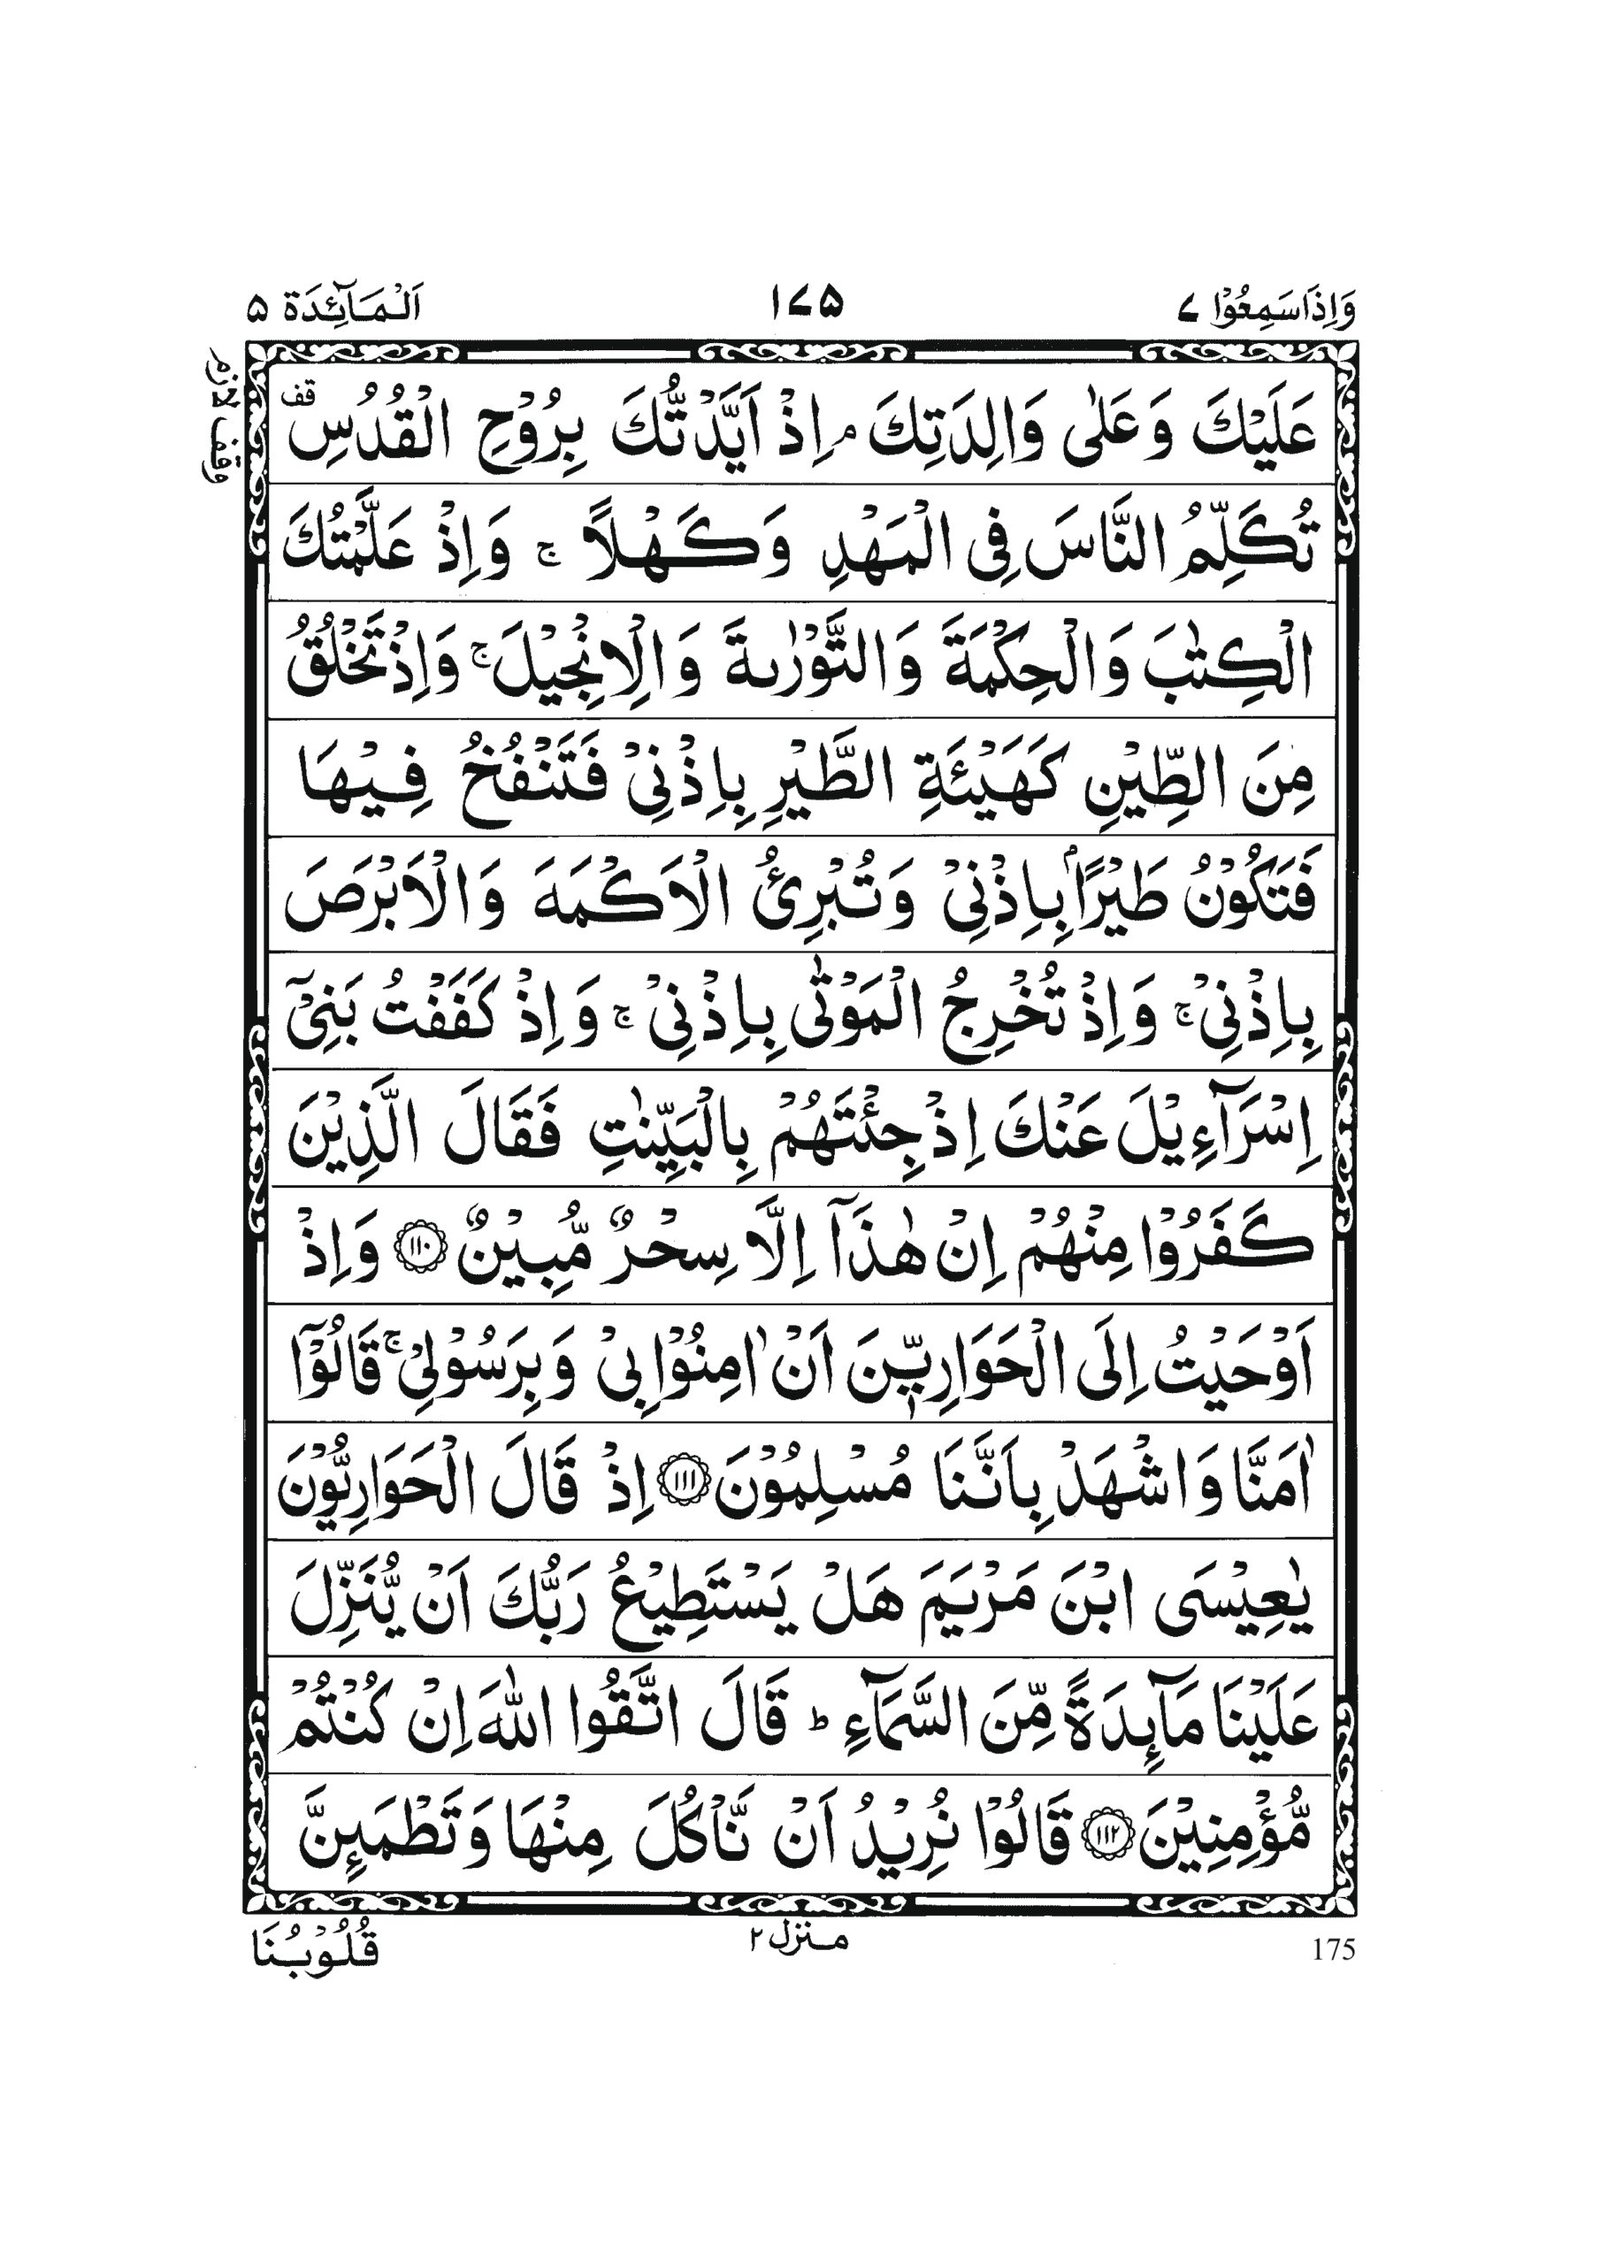 وَاِذَاسَمِعُوْا ۷
۱۷۵
اَلْمَآئِدَة ۵
وقف لازم
عَلَيْكَ وَعَلٰى وَالِدَتِكَ ۘ اِذْ اَيَّدْتُّكَ بِرُوْحِ الْقُدُسِ قف
تُكَلِّمُ النَّاسَ فِى الْمَهْدِ وَكَهْلًا ۚ وَاِذْ عَلَّمْتُكَ
الْكِتٰبَ وَالْحِكْمَةَ وَالتَّوْرٰىةَ وَالْاِنْجِيْلَ ۚ وَاِذْ تَخْلُقُ
مِنَ الطِّيْنِ كَهَيْئَةِ الطَّيْرِ بِاِذْنِىْ فَتَنْفُخُ فِيْهَا
فَتَكُوْنُ طَيْرًاۢ بِاِذْنِىْ وَتُبْرِئُ الْاَكْمَهَ وَالْاَبْرَصَ
بِاِذْنِىْ ۚ وَاِذْ تُخْرِجُ الْمَوْتٰى بِاِذْنِىْ ۚ وَاِذْ كَفَفْتُ بَنِىْٓ
اِسْرَآءِيْلَ عَنْكَ اِذْ جِئْتَهُمْ بِالْبَيِّنٰتِ فَقَالَ الَّذِيْنَ
كَفَرُوْا مِنْهُمْ اِنْ هٰذَآ اِلَّا سِحْرٌ مُّبِيْنٌ ۝۱۱۰ وَاِذْ
اَوْحَيْتُ اِلَى الْحَوَارِيّٖنَ اَنْ اٰمِنُوْا بِىْ وَبِرَسُوْلِىْ ۚ قَالُوْٓا
اٰمَنَّا وَاشْهَدْ بِاَنَّنَا مُسْلِمُوْنَ ۝۱۱۱ اِذْ قَالَ الْحَوَارِيُّوْنَ
يٰعِيْسَى ابْنَ مَرْيَمَ هَلْ يَسْتَطِيْعُ رَبُّكَ اَنْ يُّنَزِّلَ
عَلَيْنَا مَآئِدَةً مِّنَ السَّمَآءِ ؕ قَالَ اتَّقُوا اللّٰهَ اِنْ كُنْتُمْ
مُّؤْمِنِيْنَ ۝۱۱۲ قَالُوْا نُرِيْدُ اَنْ نَّاْكُلَ مِنْهَا وَتَطْمَئِنَّ
قُلُوْبُنَا
منزل ۲
175